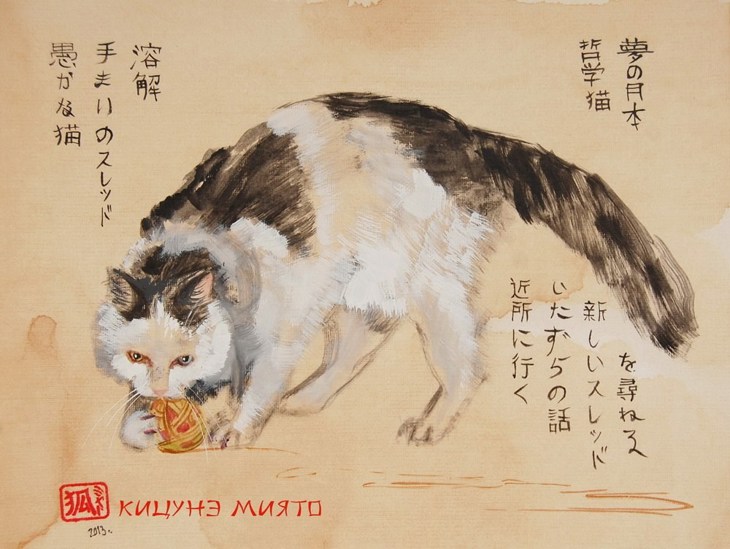 夢の月本
哲学猫
を尋ねる
新しいスレッド
いたずらの話
近所に行く
溶解
手まりのスレッド
愚かな猫
狐
КИЦУНЭ МИЯТО
2013г.